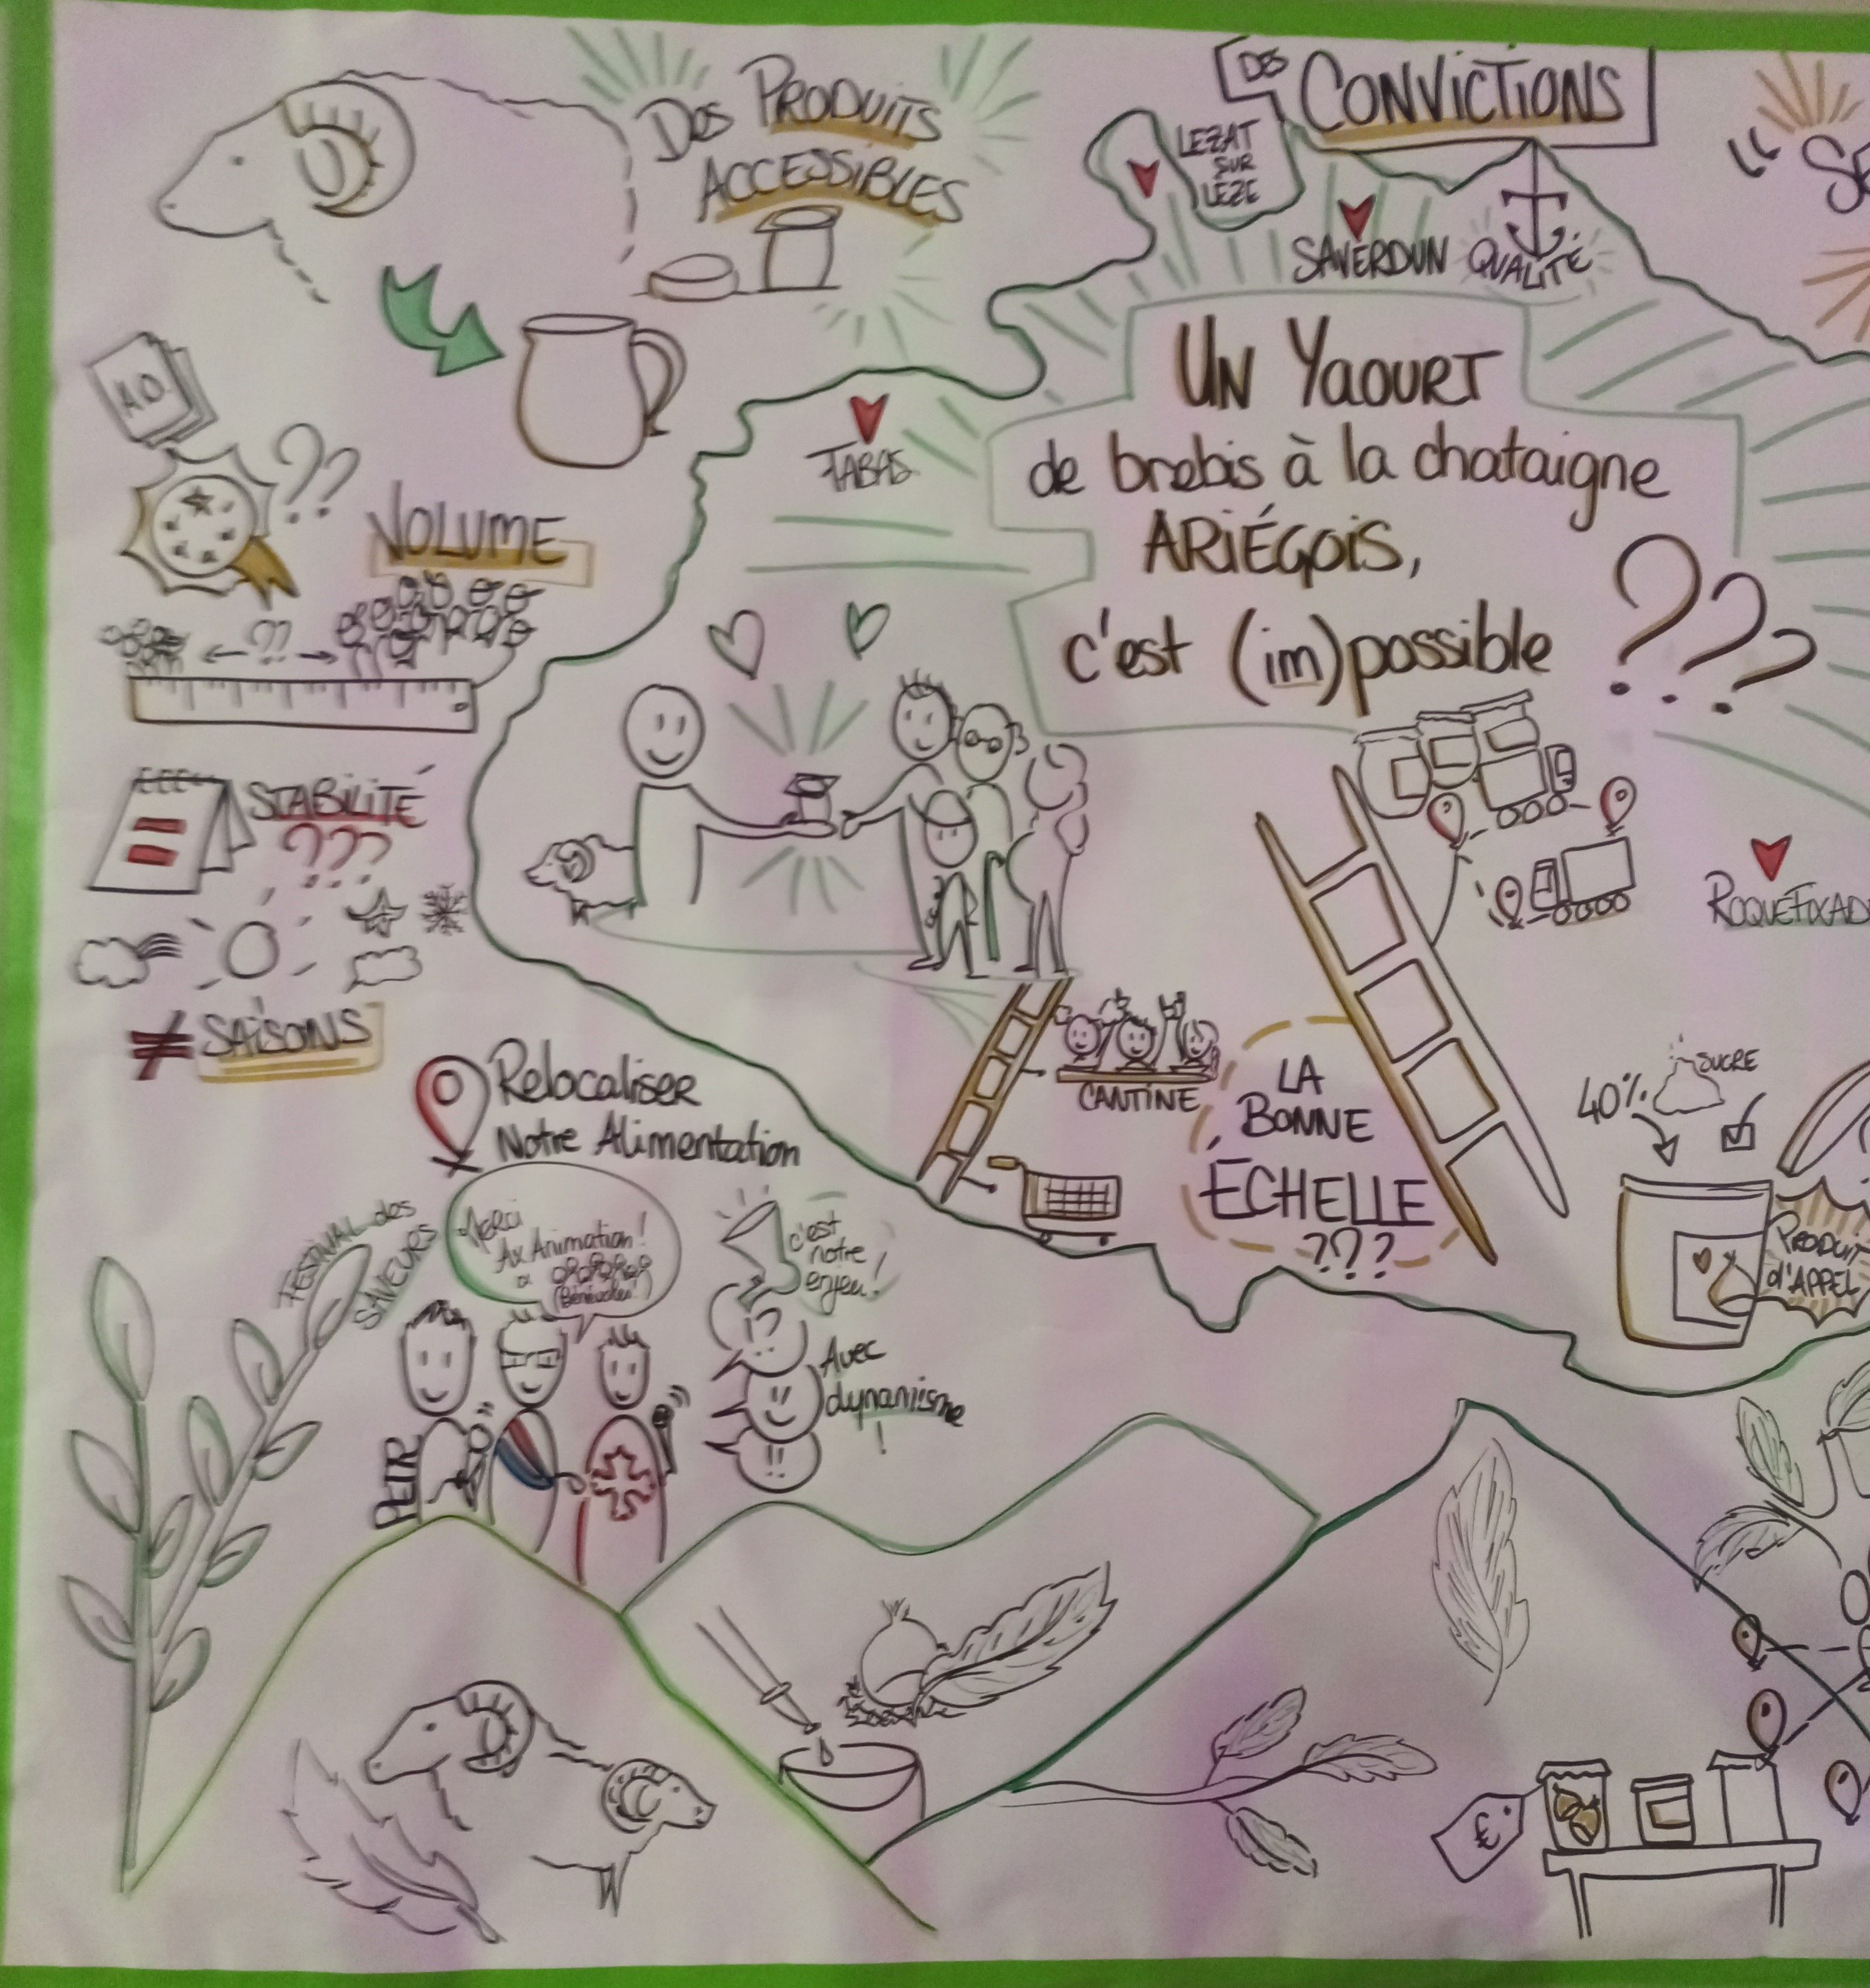 Des PRODUITS
ACCESSIBLES
DES CONVICTIONS
LEZAT
SUR
LEZE
SAVERDUN
QUALITÉ
UN YAOURT
de brebis à la chataigne
ARIÉGOIS,
c'est (im)possible ???
AO
??
VOLUME
← ?? →
STABILITÉ
???
≠ SAISONS
Relocaliser
Notre Alimentation
CANTINE
LA
BONNE
ÉCHELLE
???
40%
SUCRE
PRODUIT
d'APPEL
FESTIVAL des
SAVEURS
Merci
Ax Animation!
(Bénévoles!)
c'est
notre
enjeu!
!?
Avec
dynamisme
!
!!
PETR
€